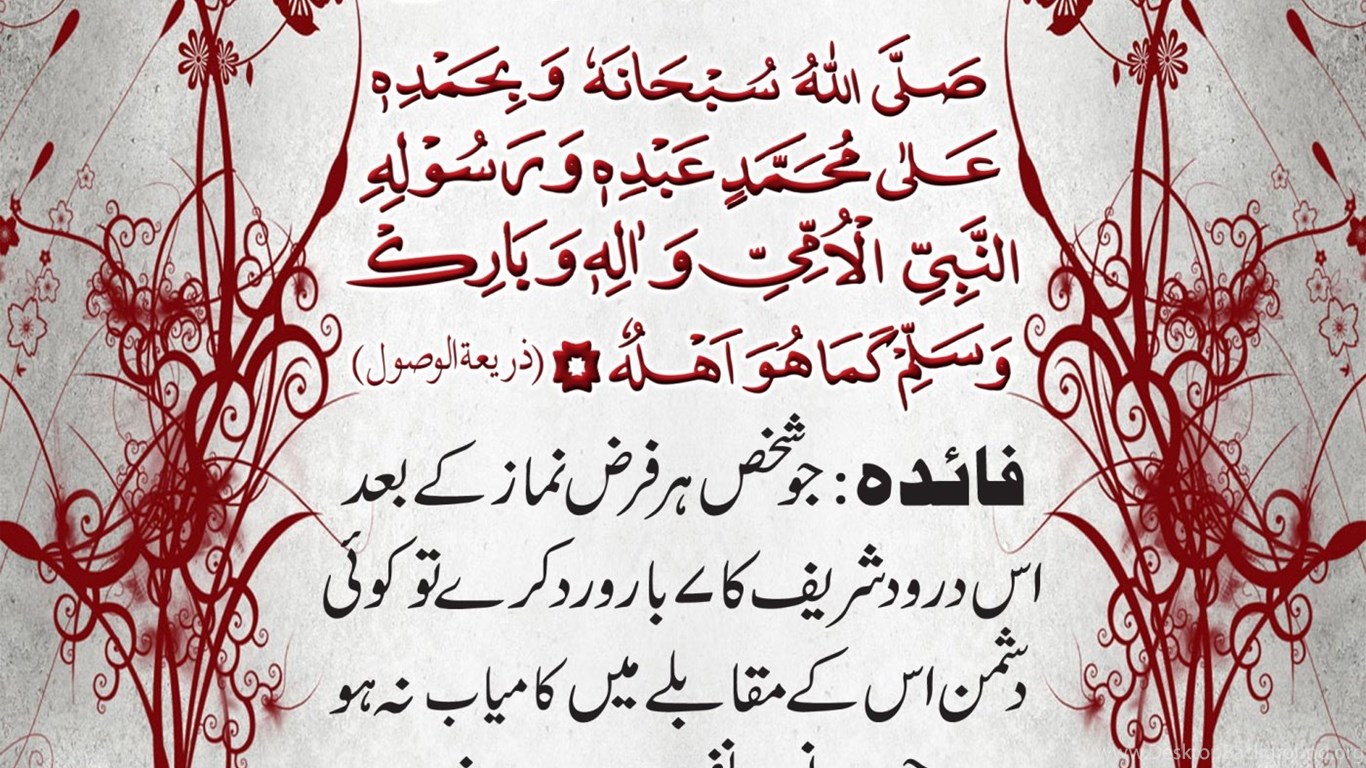 صَلَّی اللّٰہُ سُبْحَانَہٗ وَ بِحَمْدِہٖ
عَلٰی مُحَمَّدٍ عَبْدِہٖ وَ رَسُوْلِہِ
النَّبِیِّ الْاُمِّیِّ وَ اٰلِہٖ وَ بَارِکْ
وَسَلِّمْ کَمَا ھُوَ اَھْلُہٗ (ذریعة الوصول)
فائدہ: جو شخص ہر فرض نماز کے بعد
اس درود شریف کا ۷ بار ورد کرے تو کوئی
دشمن اس کے مقابلے میں کامیاب نہ ہو